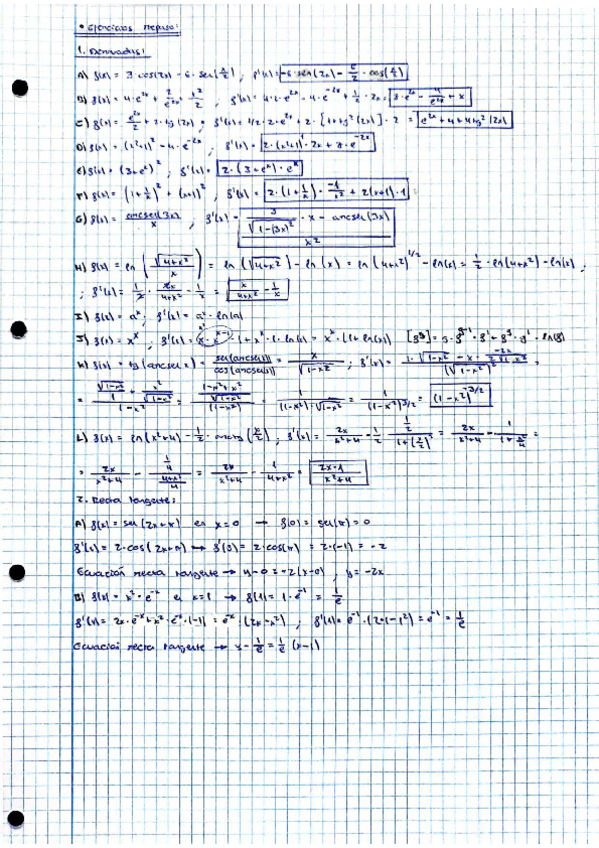 • Ejercicios repaso:
1. Derivadas:
A) f(x) = 3 cos(2x) - 6 · sen(x/2) ; f'(x) = -6 · sen(2x) -
B) f(x) = 4 · e^2x + 2/e^2x + x²/2 ; f'(x) = 4 · 2 · e^2x - 4 · e^-2x + 1/2 · 2x =
C) f(x) = e^2x/2 + 2 · tg(2x) = f'(x) = 1/2 · 2 · e^2x + 2 · [1 + tg²(2x)] · 2 = e^2x + 4 + 4tg²(2x)
D) f(x) = (x²+1)² - 4 · e^-2x ; f'(x) = 2 · (x²+1)¹ · 2x +
E) f(x) = (3+e^x)² ; f'(x) = 2 · (3+e^x) · e^x
F) f(x) = (1+1/x)² + (x+1)² ; f'(x) = 2 · (1+1/x) · -1/x² + 2(x+1) · 1
G) f(x) = arcsen(3x)/x ; f'(x) = (3/√(1-(3x)²) · x - arcsen(3x))/x²
H) f(x) = ln(√(4+x²)/x) = ln(√(4+x²)) - ln(x) = ln(4+x²)^1/2 - ln(x) = 1/2 · ln(4+x²) - ln(x) ;
; f'(x) = 1/2 · 2x/(4+x²) - 1/x = x/(4+x²) - 1/x
I) f(x) = a^x ; f'(x) = a^x · ln(a)
J) f(x) = x^x ; f'(x) = x · x^x-1 · 1 + x^x · 1 · ln(x) = x^x · (1+ln(x))
K) f(x) = tg(arcsen x) = sen(arcsen(x))/cos(arcsen(x)) = x/√(1-x²) ; f'(x) =
= 1/((1-x²) · √(1-x²)) = 1/(1-x²)^3/2 = (1-x²)^-3/2
L) f(x) = ln(x²+4) - 1/2 · arctg(x/2) ; f'(x) = 2x/(x²+4) - 1/2 · (1/2)/(1+(x/2)²) =
= 2x/(x²+4) - (1/4)/((4+x²)/4) = 2x/(x²+4) - 1/(4+x²) = (2x-1)/(x²+4)
2. Recta tangente:
A) f(x) = sen(2x+π) en x=0 → f(0) = sen(π) = 0
f'(x) = 2 · cos(2x+π) → f'(0) = 2 · cos(π) = 2 · (-1) = -2
Ecuación recta tangente → y-0 = -2(x-0) ; y = -2x
B) f(x) = x² · e^-x en x=1 → f(1) = 1 · e^-1 = 1/e
f'(x) = 2x · e^-x + x² · e^-x · (-1) = e^-x · (2x-x²) ; f'(1) = e^-1 · (2·1-1²) = e^-1 = 1/e
Ecuación recta tangente → x - 1/e = 1/e (x-1)